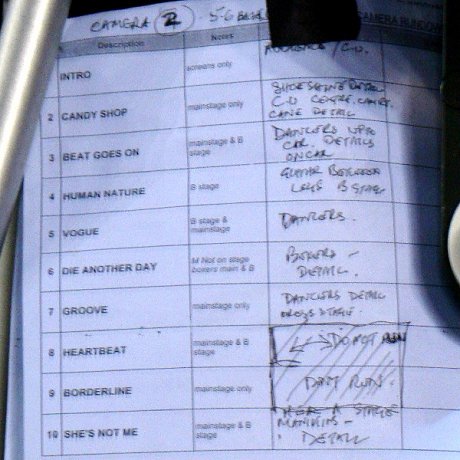 CAMERA 2 - 5-6
CAMERA RUNDOW
Description Notes
INTRO screens only
2 CANDY SHOP mainstage only SHOESHINE DETAIL
C.U CENTRE, CANE DETAIL
3 BEAT GOES ON mainstage & B stage DANCERS INTO
CAR. DETAILS
ON CAR
4 HUMAN NATURE B stage GUITAR BETWEEN
LEGS B STAGE
5 VOGUE B stage & mainstage DANCERS.
6 DIE ANOTHER DAY M Not on stage boxers main & B BOXERS -
DETAIL.
7 GROOVE mainstage only DANCERS DETAIL
CROSS STAGE.
8 HEARTBEAT mainstage & B stage DO NOT RUN
9 BORDERLINE mainstage only DON'T RUN.
10 SHE'S NOT ME mainstage & B stage A STAGE
- DETAIL